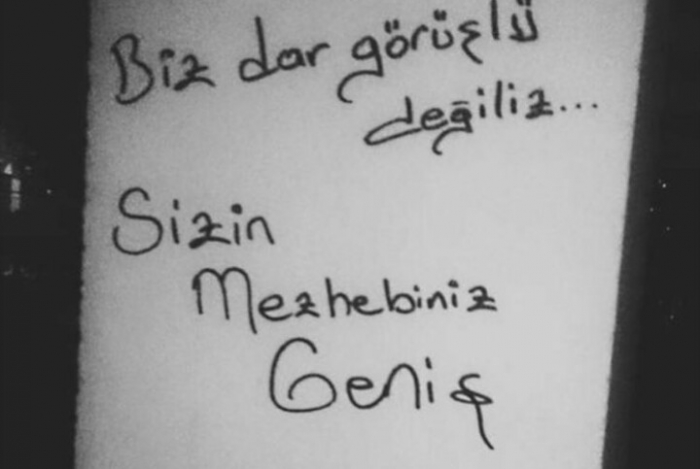 Biz dar görüşlü
değiliz...
Sizin
Mezhebiniz
Geniş